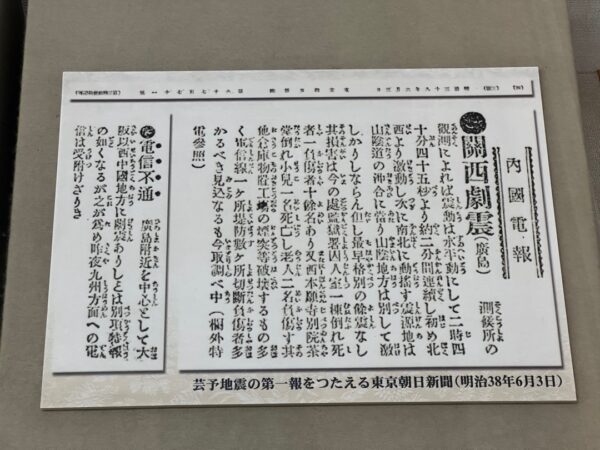 內國電報
關西劇震(廣島) 測候所の
觀測によれば震動は水平動にして二時四
十分四十五秒より約二分間連續し初め北
西より激動し次に南北に動搖す震源地は
山陰道の沖合に當り山陰地方は別して激
しかりしならん但し最早格別の餘震なし
其損害は今の處監獄署囚人室一棟倒れ死
者一負傷者十餘名あり又西本願寺別院茶
堂倒れ小兒一名死亡し老人二名負傷す其
他倉庫物置工場の煙突等破壞するもの多
く電信線一ケ所堤防數ケ所切斷負傷者多
かるべき見込なるも今取調べ中(欄外特
電參照)
電信不通 廣島附近を中心として大
阪以西中國地方に劇震ありしとは別項特報
の如くなるが之が爲め昨夜九州方面への電
信は受附けざりき
芸予地震の第一報をつたえる東京朝日新聞(明治38年6月3日)